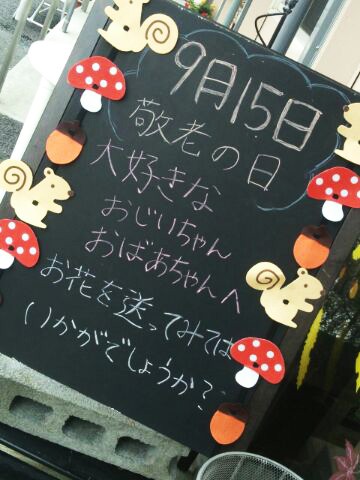 9月15日
敬老の日
大好きな
おじいちゃん
おばあちゃんへ
お花を送ってみては
いかがでしょうか?